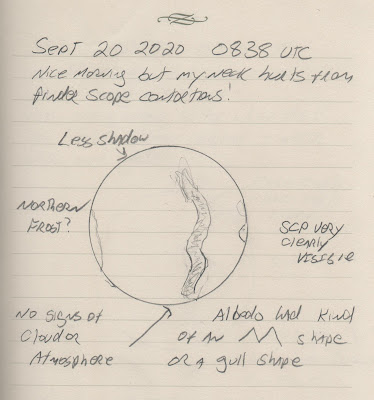 Sept 20 2020 0838 UTC
Nice morning but my neck hurts from
finder scope contortions!
Less shadow
Northern
Frost?
SCP very
clearly
visible
No signs of
Cloud or
Atmosphere
Albedo had kind
of an M shape
or a gull shape